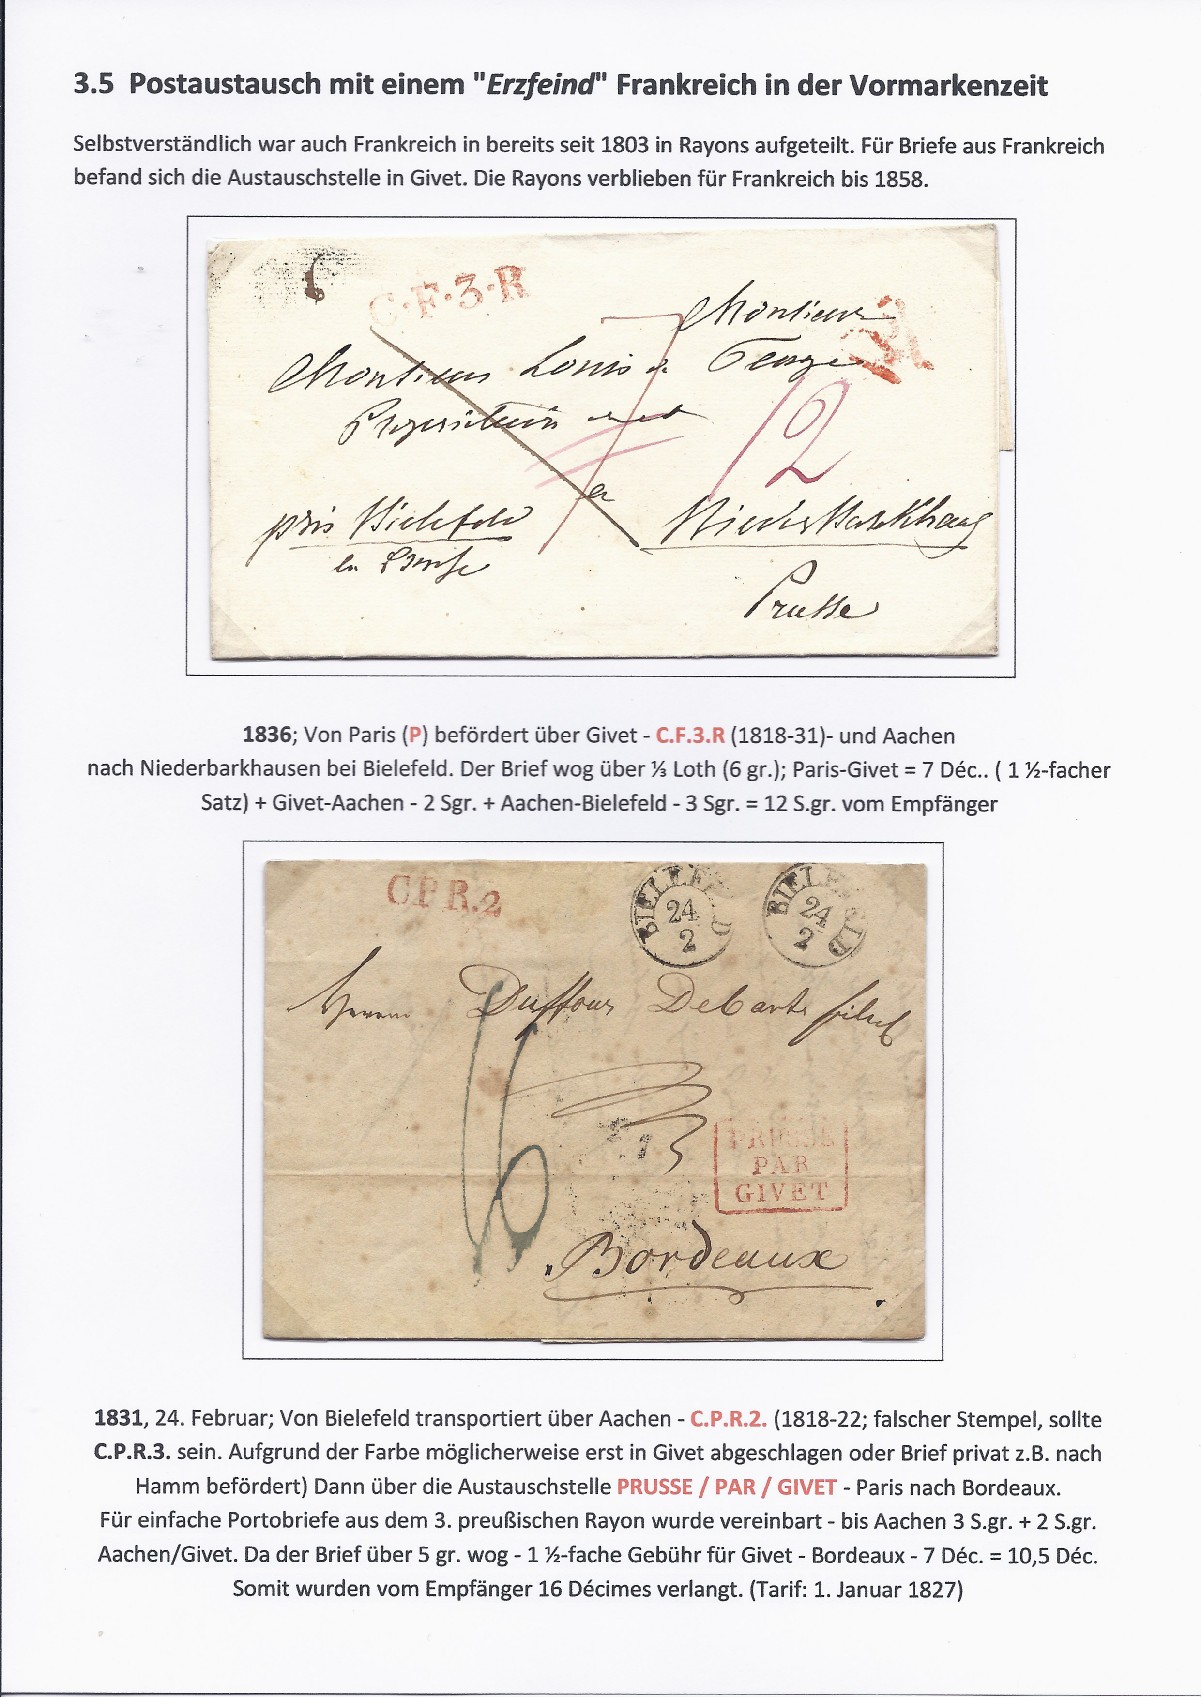 3.5 Postaustausch mit einem "Erzfeind" Frankreich in der Vormarkenzeit
Selbstverständlich war auch Frankreich in bereits seit 1803 in Rayons aufgeteilt. Für Briefe aus Frankreich
befand sich die Austauschstelle in Givet. Die Rayons verblieben für Frankreich bis 1858.
C·F·3·R
Monsieur
Monsieur Louis
7
12
près Bielefeld
Prusse
1836; Von Paris (P) befördert über Givet - C.F.3.R (1818-31)- und Aachen
nach Niederbarkhausen bei Bielefeld. Der Brief wog über ⅓ Loth (6 gr.); Paris-Givet = 7 Déc.. ( 1 ½-facher
Satz) + Givet-Aachen - 2 Sgr. + Aachen-Bielefeld - 3 Sgr. = 12 S.gr. vom Empfänger
C.P.R.2
BIELEFELD
24
2
BIELEFELD
24
2
Herrn Duffour
16
PRUSSE
PAR
GIVET
Bordeaux
1831, 24. Februar; Von Bielefeld transportiert über Aachen - C.P.R.2. (1818-22; falscher Stempel, sollte
C.P.R.3. sein. Aufgrund der Farbe möglicherweise erst in Givet abgeschlagen oder Brief privat z.B. nach
Hamm befördert) Dann über die Austauschstelle PRUSSE / PAR / GIVET - Paris nach Bordeaux.
Für einfache Portobriefe aus dem 3. preußischen Rayon wurde vereinbart - bis Aachen 3 S.gr. + 2 S.gr.
Aachen/Givet. Da der Brief über 5 gr. wog - 1 ½-fache Gebühr für Givet - Bordeaux - 7 Déc. = 10,5 Déc.
Somit wurden vom Empfänger 16 Décimes verlangt. (Tarif: 1. Januar 1827)